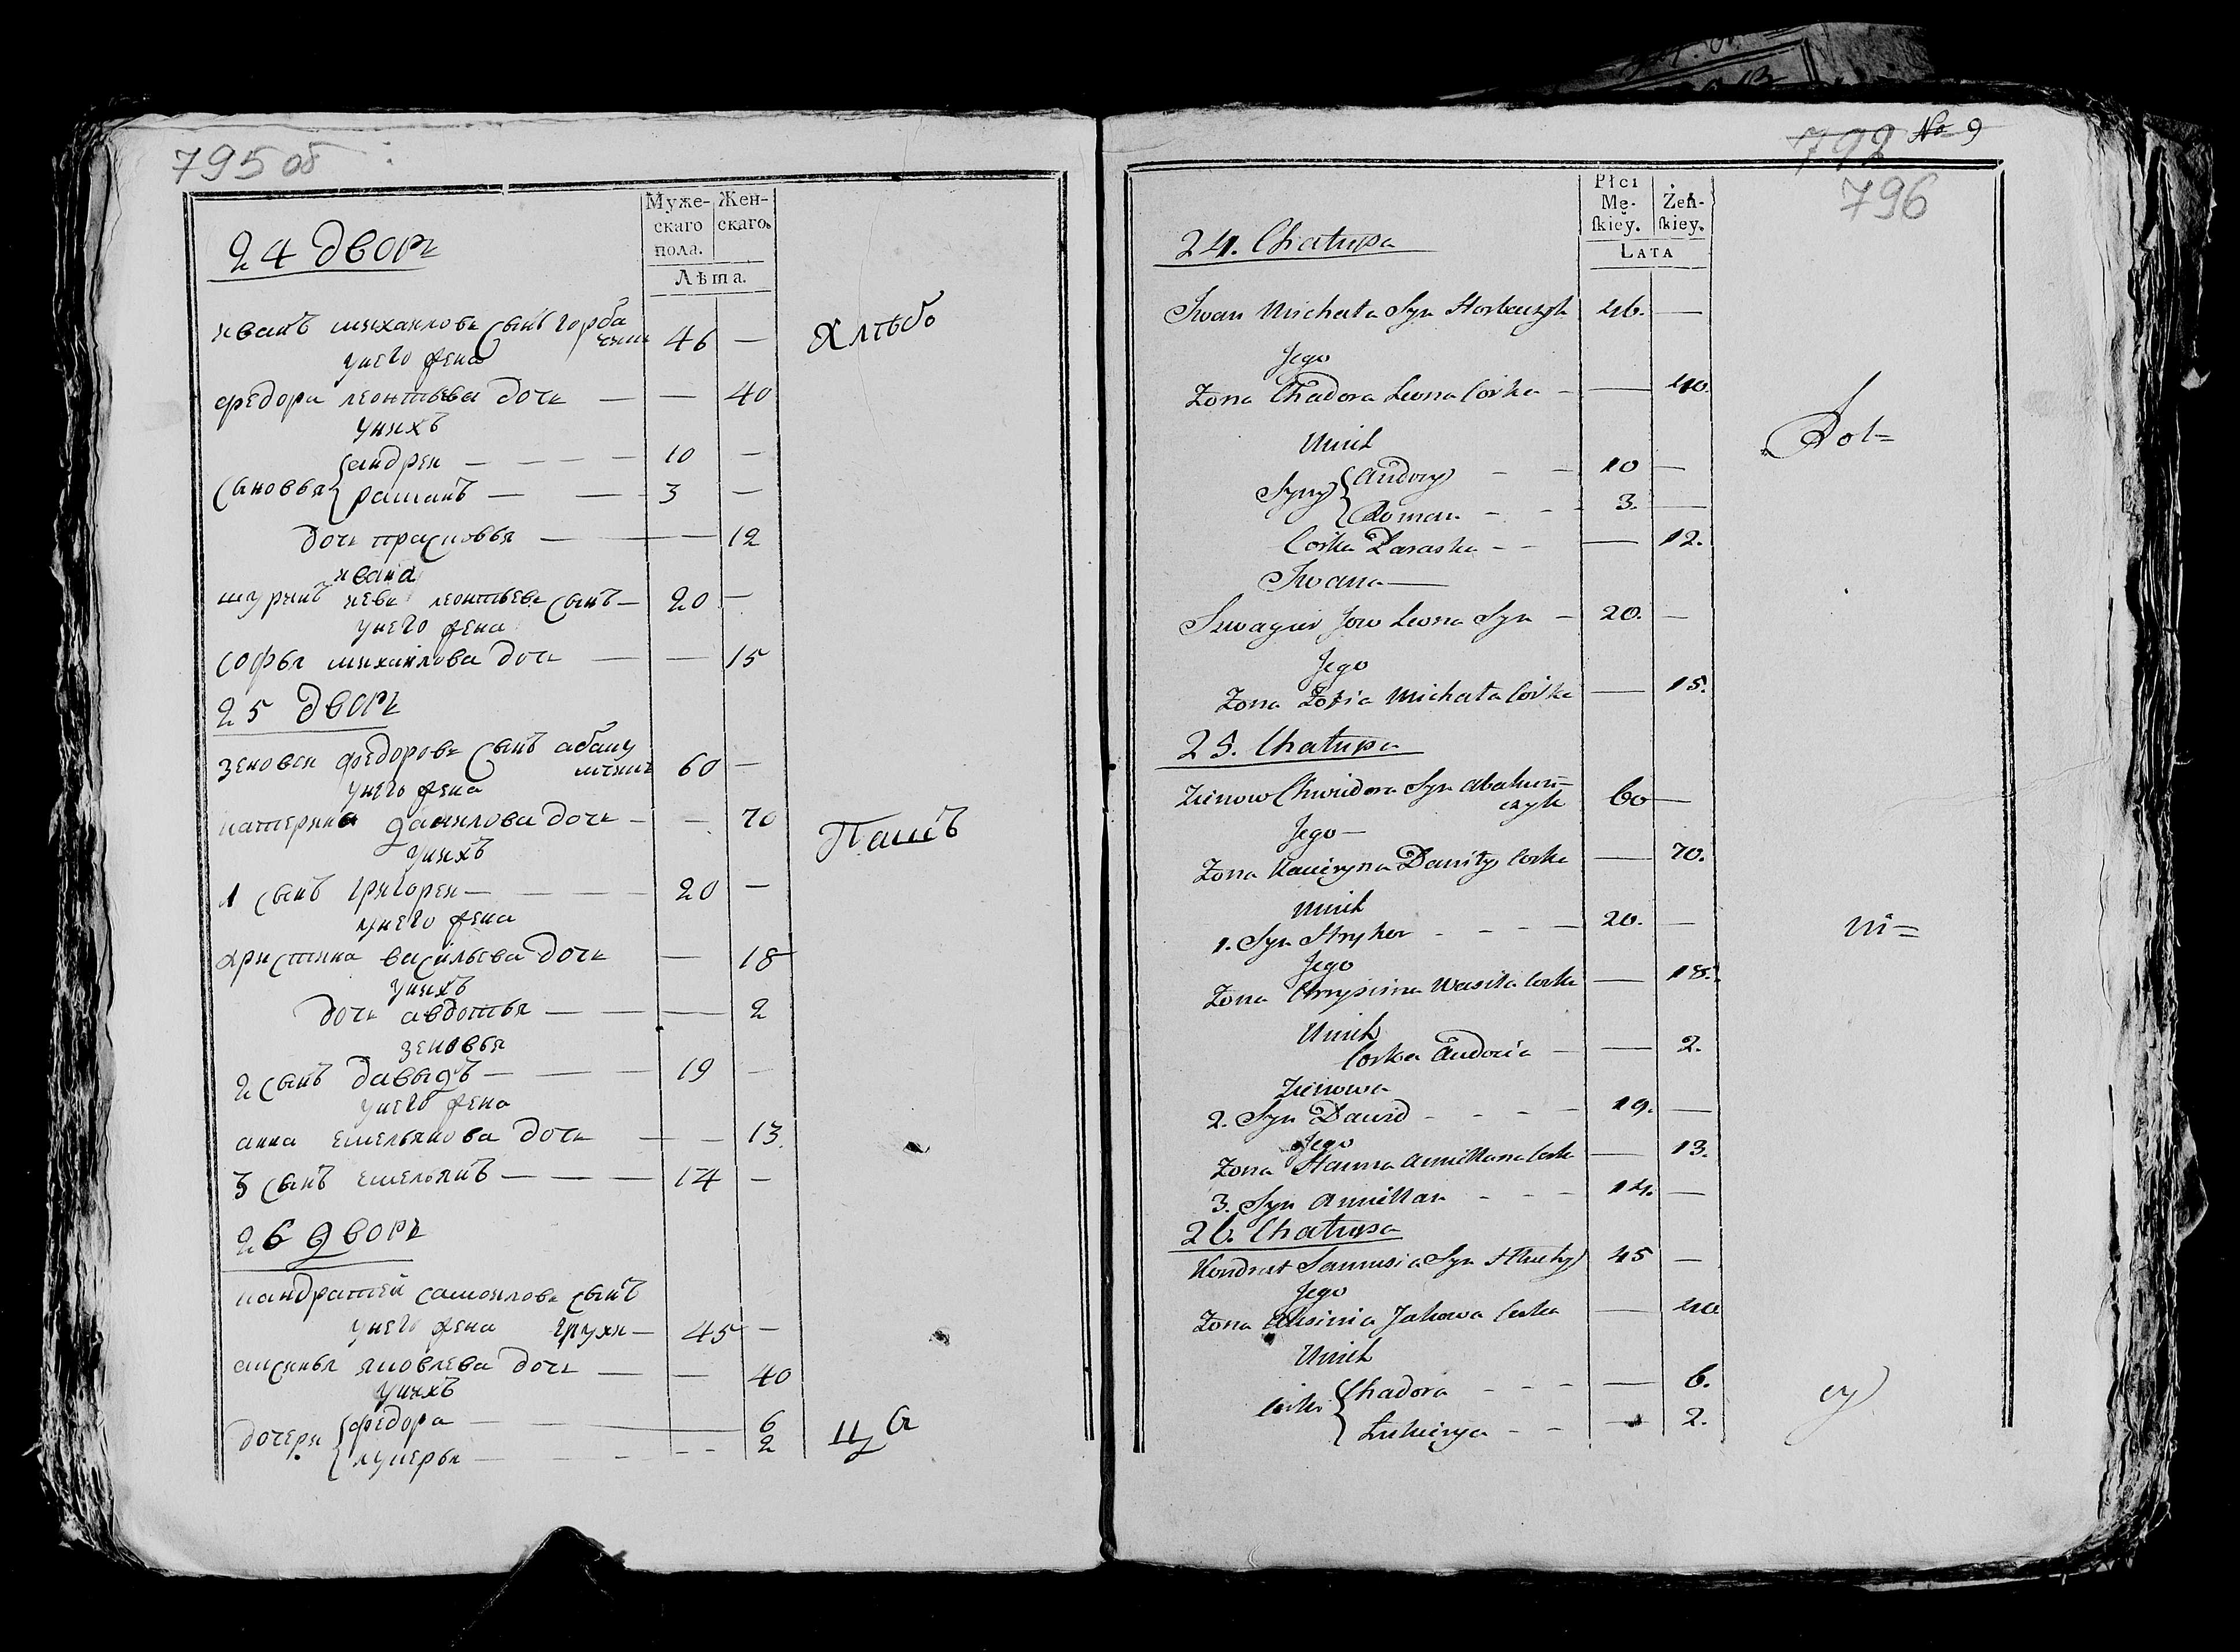 795 об
Муже- Жен-
скаго скаго.
пола.
Лѣта.
24 дворъ
иванъ михаилова сынъ горба
чикъ 46 — Хлѣбо
у него жена
федора леонтьева дочь — — 40
у нихъ
сыновья { андреи — 10 —
раманъ — 3 —
дочь прасковья — — 12
ивана
шуринъ иевъ леонтьева сынъ — 20 —
у него жена
софья михаилова дочь — — 15
25 дворъ
зеновеи федорова сынъ абаку
мчикъ 60 —
у него жена
катерина данилова дочь — — 70 Пашъ
у нихъ
1 сынъ григореи — 20 —
у него жена
христина васильева дочь — 18
у нихъ
дочь авдотья — — 2
зеновья
2 сынъ давыдъ — 19 —
у него жена
анна емельянова дочь — — 13.
3 сынъ емельянъ — 14 —
26 дворъ
кандратей самоилова сынъ
глухи — 45 —
у него жена
аксинья яковлева дочь — — 40
у нихъ
дочери { федора — 6
лукерья — 2 ца
792 No 9
796
Płci
Mę- Żeń-
ſkiey. ſkiey.
LATA
24. Chałupa
Iwan Michała Syn Horbaczyk 46. —
Jego
Zona Chadora Leona Corka — 40.
U nich
Rol=
Syny { Andrey — 10 —
Roman — 3. —
Corka Paraska — 12.
Iwana —
Szwagier Jow Leona Syn — 20. —
Jego
Zona Zofia Michała Corka — 15.
25. Chałupa
Zienow Chwiedora Syn Abakum=
czyk 60 —
Jego —
Zona Kacieryna Daniły Corka — 70.
U nich
1. Syn Hryhor — 20. — ni=
Jego
Zona Chrysinia Wasila Corka — 18.
U nich
Corka Audocia — 2.
Zienowa
2. Syn Dawid — 19. —
Jego
Zona Hanna Amillana Corka — 13.
3. Syn Amillan — 14. —
26. Chałupa
Kondrat Samusia Syn Hłuchy 45 —
Jego
Zona Aksinia Jakowa Corka — 40
U nich
Corki { Chadora — 6. cy
Łukierya — 2.